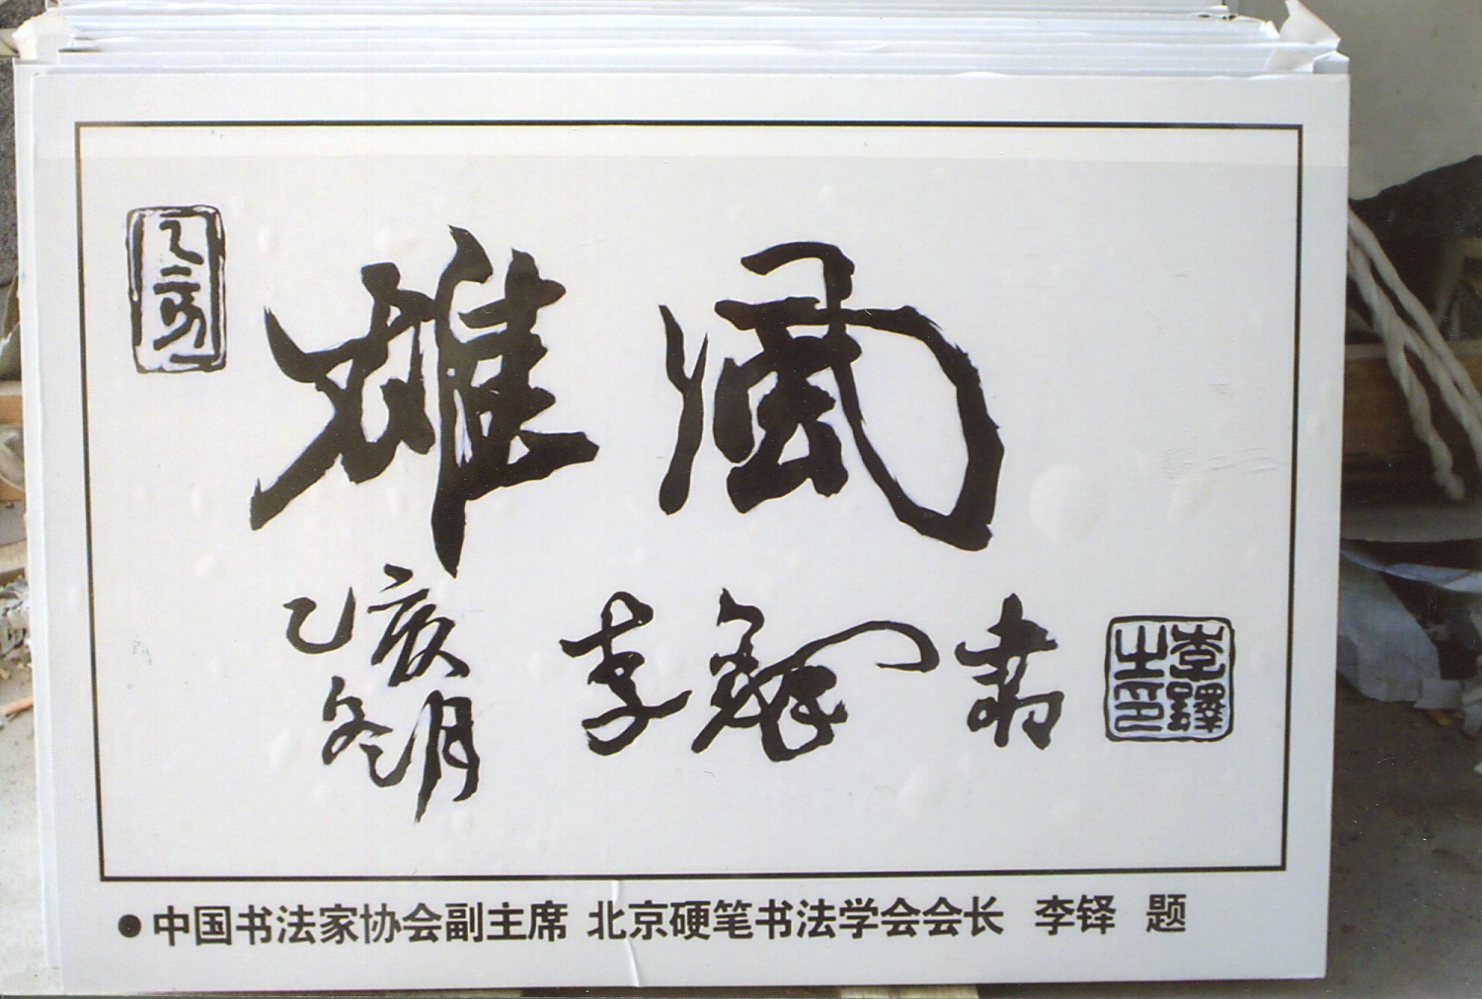 乙亥
雄风
乙亥
冬月
李铎书
李铎之印
●中国书法家协会副主席 北京硬笔书法学会会长 李铎 题